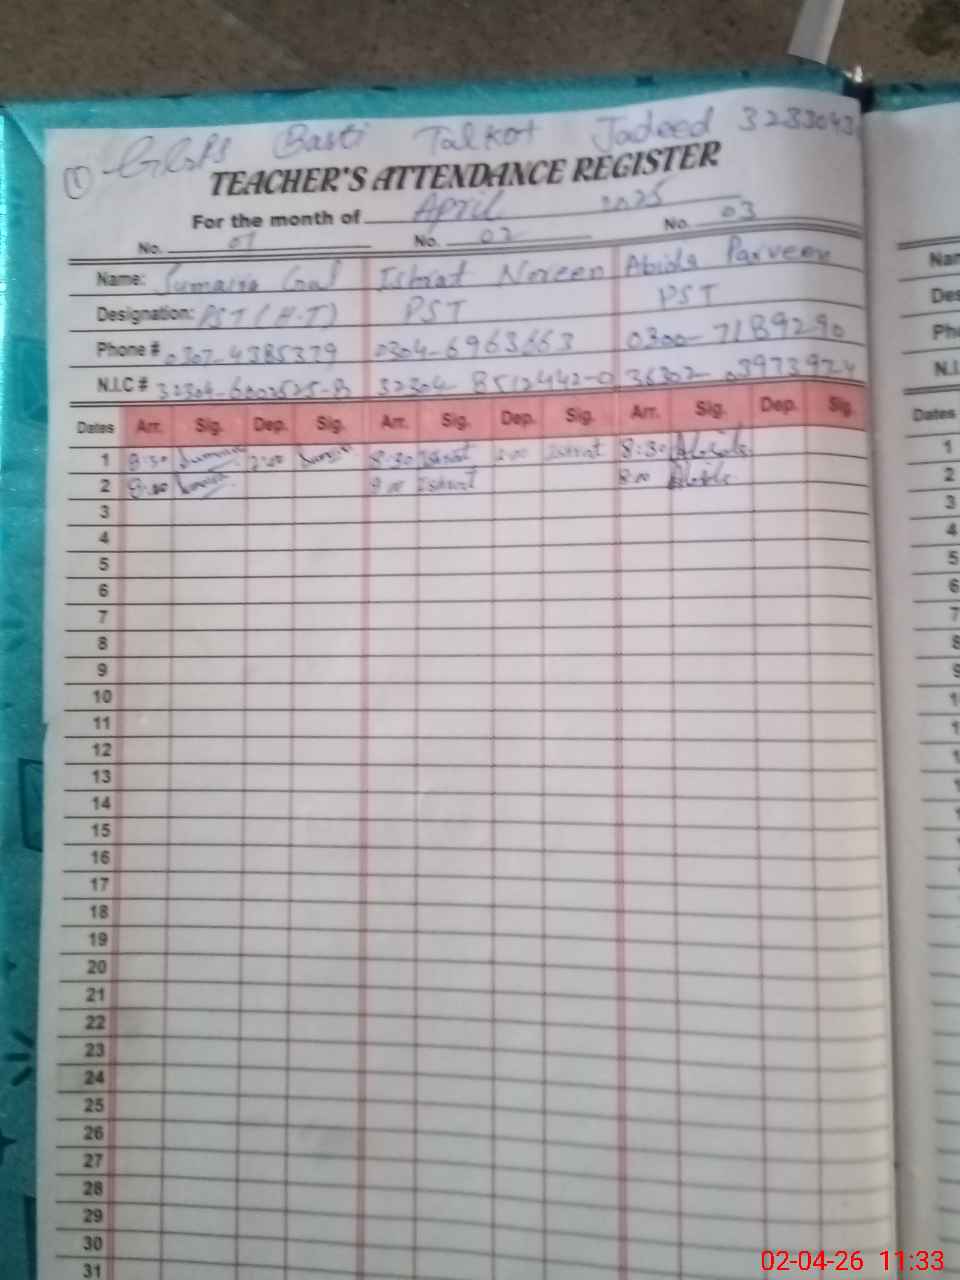 ① GGPS Basti Talkot Jadeed 3233043
TEACHER'S ATTENDANCE REGISTER
For the month of April 2025
No. 01 No. 02 No. 03
Name: Sumaira Gul Ishrat Noreen Abida Parveen
Designation: PST (H.T) PST PST
Phone # 0307-4385379 0304-6963663 0300-7189290
N.I.C # 32304-6002525-8 32304-8512442-0 36302-0397397-4
Dates Arr. Sig. Dep. Sig. Arr. Sig. Dep. Sig. Arr. Sig. Dep. Sig.
1 8:30 Sumaira 2:00 Sumaira 8:30 Ishrat 2:00 Ishrat 8:30 Abida
2 8:00 Sumaira 8:00 Ishrat 8:00 Abida
3
4
5
6
7
8
9
10
11
12
13
14
15
16
17
18
19
20
21
22
23
24
25
26
27
28
29
30
31
Dates
1
2
3
4
5
6
7
02-04-26 11:33